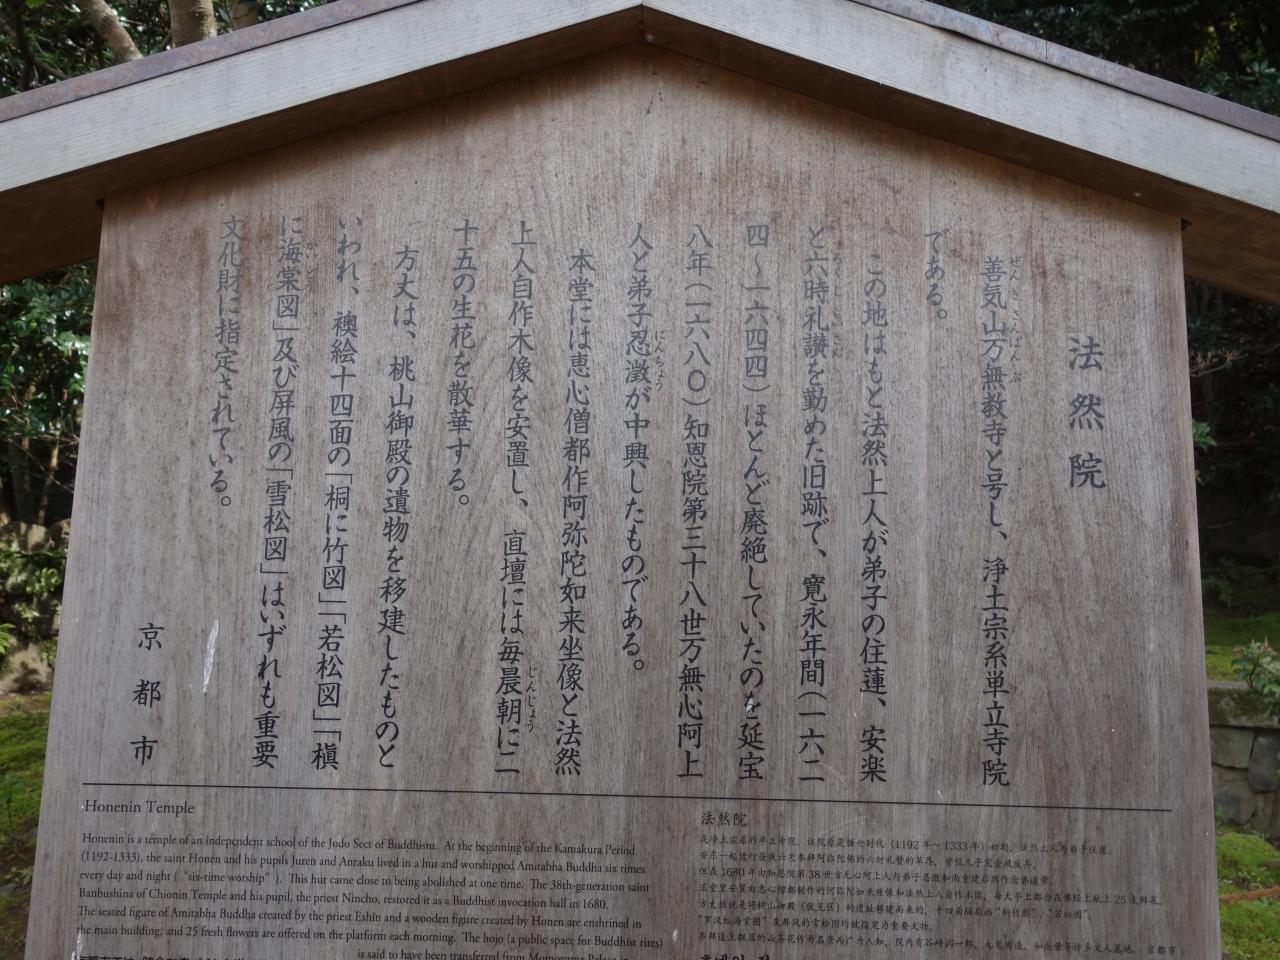 法然院
善気山万無教寺と号し、浄土宗系単立寺院
である。
この地はもと法然上人が弟子の住蓮、安楽
と六時礼讃を勤めた旧跡で、寛永年間(一六二
四〜一六四四)ほとんど廃絶していたのを延宝
八年(一六八〇)知恩院第三十八世万無心阿上
人と弟子忍澂が中興したものである。
本堂には恵心僧都作阿弥陀如来坐像と法然
上人自作木像を安置し、直壇には毎晨朝に二
十五の生花を散華する。
方丈は、桃山御殿の遺物を移建したものと
いわれ、襖絵十四面の「桐に竹図」「若松図」「槇
に海棠図」及び屏風の「雪松図」はいずれも重要
文化財に指定されている。
京都市
Honenin Temple
Honenin is a temple of an independent school of the Jodo Sect of Buddhism. At the beginning of the Kamakura Period
(1192-1333), the saint Honen and his pupils Juren and Anraku lived in a hut and worshipped Amitabha Buddha six times
every day and night ( "six-time worship" ). This hut came close to being abolished at one time. The 38th-generation saint
Banbushina of Chionin Temple and his pupil, the priest Nincho, restored it as a Buddhist invocation hall in 1680.
The seated figure of Amitabha Buddha created by the priest Eshin and a wooden figure created by Honen are enshrined in
the main building, and 25 fresh flowers are offered on the platform each morning. The hojo (a public space for Buddhist rites)
is said to have been transferred from Momoyama Palace in
法然院
是净土宗系的单立寺院。该院原是镰仓时代(1192年~1333年)初期，法然上人与弟子住莲、
但在1680年由知恩院第38世方无心阿上人与弟子忍澂和尚重建后用作念佛道场。